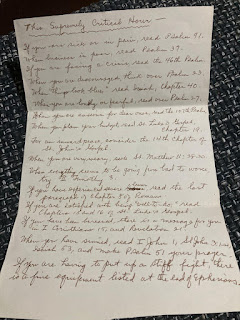 This Supremely Critical Hour —
If you are sick or in pain, read Psalm 91.
When business is poor, read Psalm 37.
If you are facing a crisis read the 46th Psalm.
When you are discouraged, think over Psalm 23.
When things look "blue" read Isaiah, Chapter 40.
When you are lonely or fearful, read Psalm 27.
When you plan your budget, read St. Luke's Gospel,
Chapter 19.
For an inward peace, consider the 14th Chapter of
St. John's Gospel.
When you are very weary, seek St. Matthew 11: 28-30.
When everything seems to be going from bad to worse,
try II Timothy 3.
If you have experienced severe losses, read the last
paragraph of Chapter 8 of Romans
If you are satisfied with being "well-to-do," read
Chapters 15 and 16 of St. Luke's Gospel.
If you have been bereaved, there is a message for you
in I Corinthians 15, and Revelation 21.
When you have sinned, read I John 1, St John 3:1-21,
Isaiah 53, and make Psalm 51 your prayer.
If you are having to put up a stiff fight, there
is a fine equipment listed at the end of Ephesians.